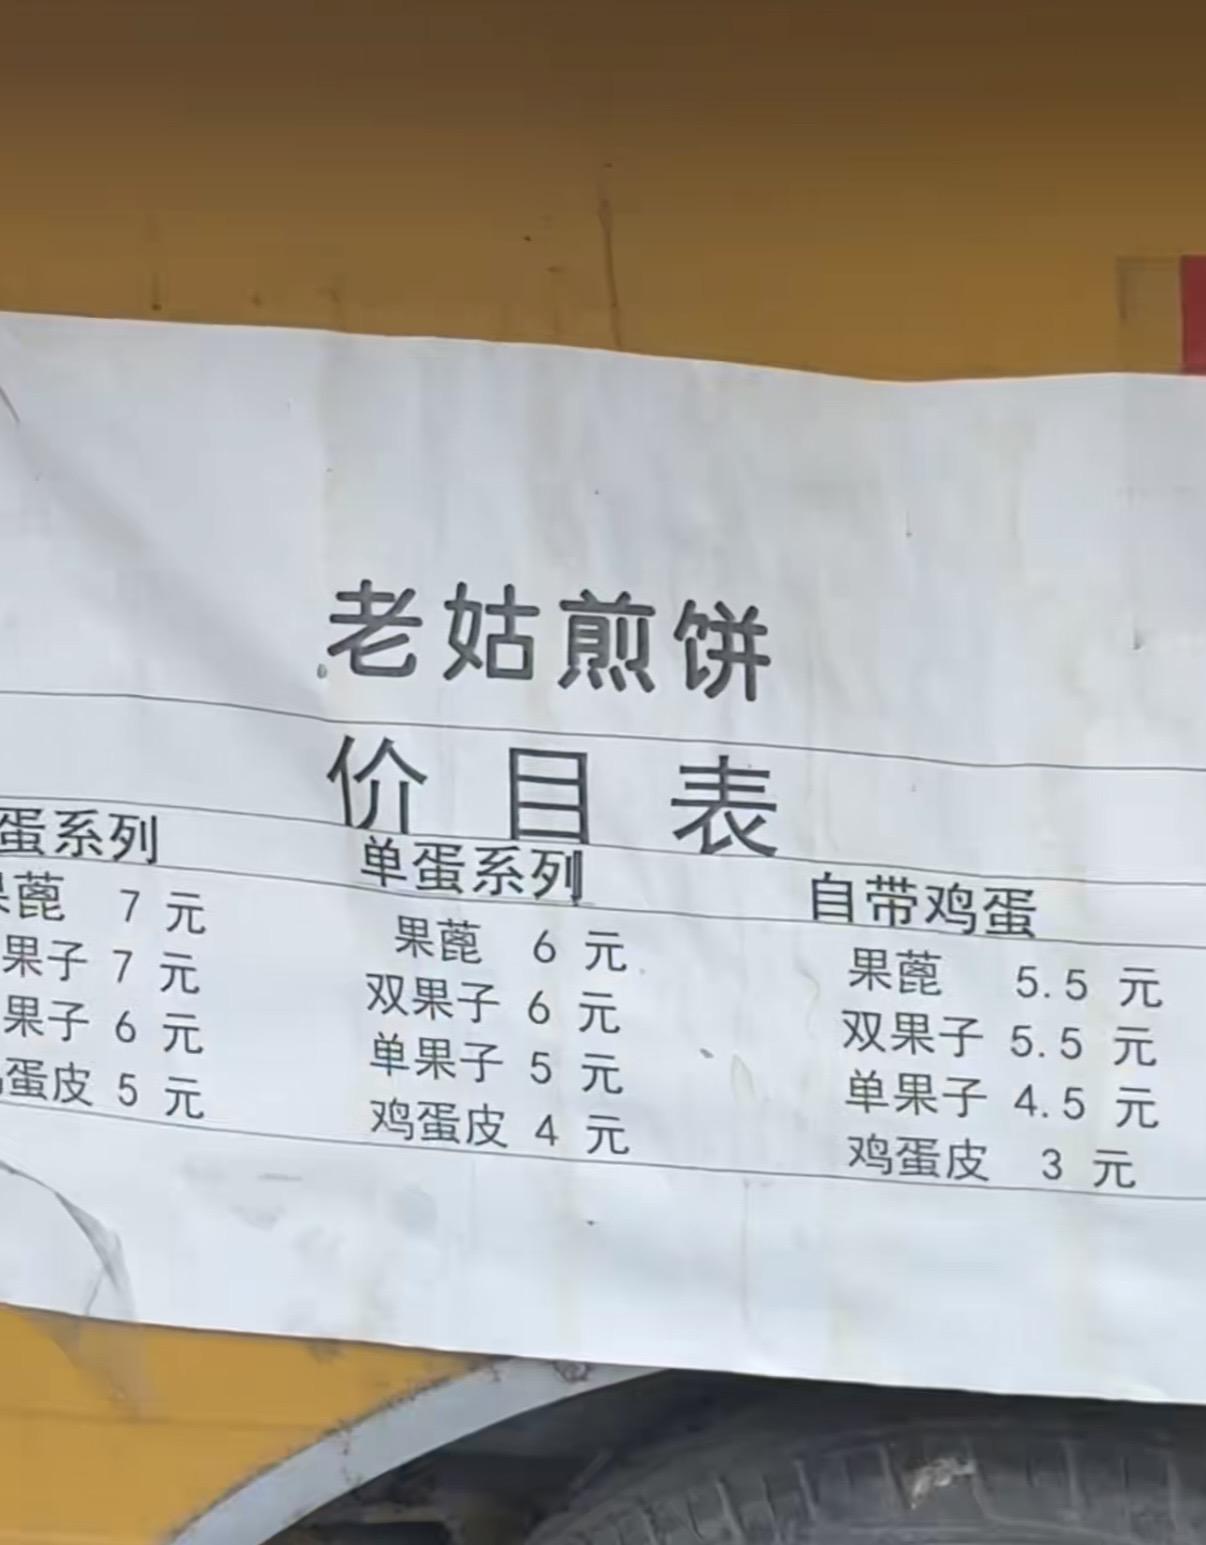 老姑煎饼
价目表
蛋系列
果蓖 7元
果子 7元
果子 6元
蛋皮 5元
单蛋系列
果蓖 6元
双果子 6元
单果子 5元
鸡蛋皮 4元
自带鸡蛋
果蓖 5.5元
双果子 5.5元
单果子 4.5元
鸡蛋皮 3元